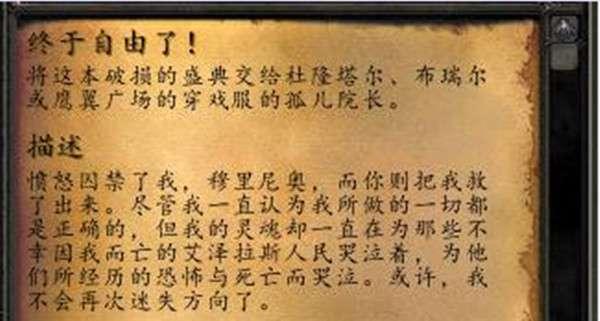 终于自由了！
将这本破损的盛典交给杜隆塔尔、布瑞尔
或鹰翼广场的穿戏服的孤儿院长。
描述
愤怒囚禁了我，穆里尼奥，而你则把我救
了出来。尽管我一直认为我所做的一切都
是正确的，但我的灵魂却一直在为那些不
幸因我而亡的艾泽拉斯人民哭泣着，为他
们所经历的恐怖与死亡而哭泣。或许，我
不会再次迷失方向了。